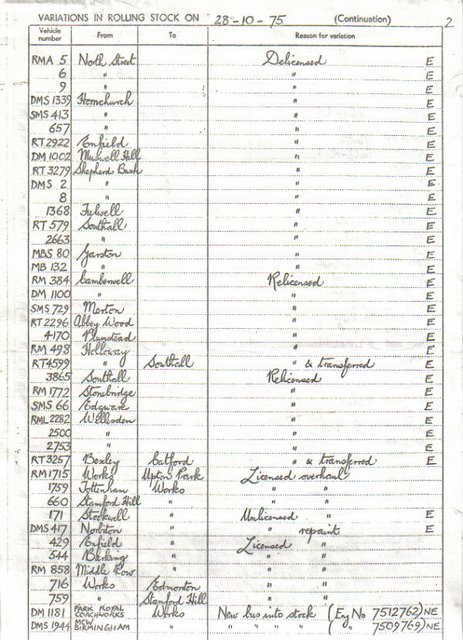 VARIATIONS IN ROLLING STOCK ON 28-10-75 (Continuation) 2
Vehicle number From To Reason for variation
RMA 5 North Street Delicensed E
6 " " E
9 " " E
DMS 1339 Hornchurch " E
SMS 413 " " E
657 " " E
RT 2922 Enfield " E
DM 1002 Muswell Hill " E
RT 3279 Shepherds Bush " E
DMS 2 " " E
8 " " E
1368 Fulwell " E
RT 579 Southall " E
2663 " " E
MBS 80 Garston " E
MB 132 " " E
RM 384 Camberwell Relicensed E
DM 1100 " " E
SMS 729 Merton " E
RT 2296 Abbey Wood " E
4170 Plumstead " E
RM 498 Holloway " E
RT 4599 Southall " & transferred E
3865 Southall Relicensed E
RM 1772 Stonebridge " E
SMS 66 Edgware " E
RML 2282 Willesden " E
2500 " " E
2753 " " E
RT 3257 Bexley Catford " & transferred E
RM 1715 Works Upton Park Licensed overhaul
1759 Tottenham Works " "
660 Stamford Hill " " "
171 Stockwell " Unlicensed " E
DMS 417 Norbiton " " repaint E
429 Enfield " Licensed "
544 Barking " " "
RM 858 Middle Row " " "
716 Works Edmonton " "
759 " Stamford Hill " "
DM 1181 PARK ROYAL COACHWORKS Works New bus into stock (Eng No 7512762) NE
DMS 1944 MCW BIRMINGHAM " " " " " ( " 7509769) NE